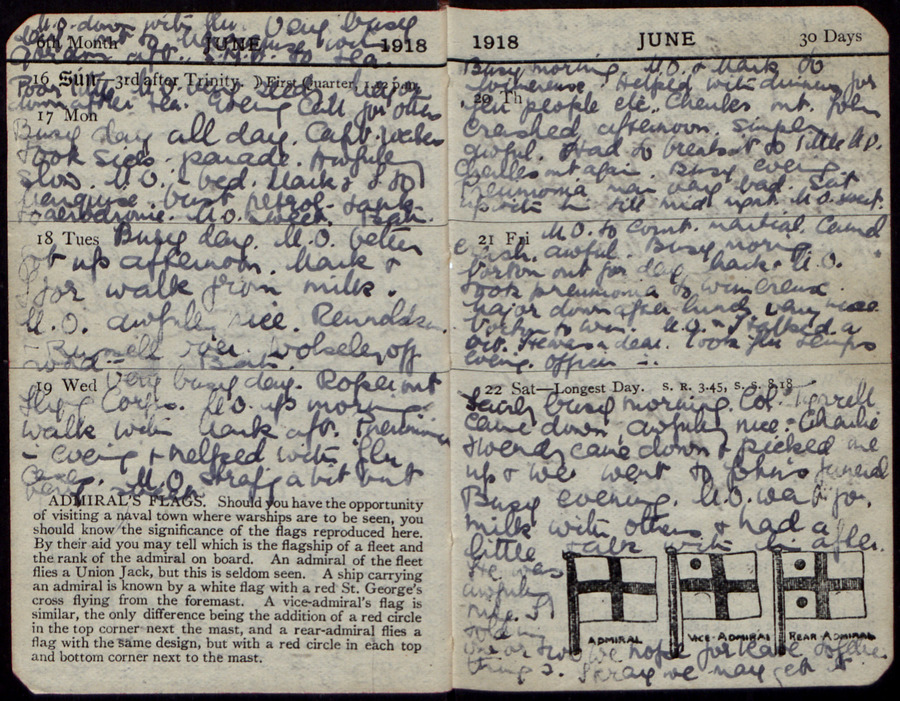 M.O. down with flu. Very busy
6th Month JUNE 1918
to tea.
16 Sun—3rd after Trinity. ☽ First Quarter, 1.12 p.m.
Poor little M.O.
down after tea. Evening Call for others
17 Mon
Busy day all day. Capt.
took sick parade. Awfully
slow. M.O. in bed. Mark & I to
burst petrol tank
aerodrome. M.O. sweet.
18 Tues Busy day. M.O. better
got up afternoon. Mark &
I for walk from milk.
M.O. awfully nice.
over. Wolseley off
19 Wed Very busy day. out
Flying Corps. M.O. up morning.
Walk with Mark aft. Pneumonia
evening & helped with flu
M.O. strafed a bit but
ADMIRAL'S FLAGS. Should you have the opportunity
of visiting a naval town where warships are to be seen, you
should know the significance of the flags reproduced here.
By their aid you may tell which is the flagship of a fleet and
the rank of the admiral on board. An admiral of the fleet
flies a Union Jack, but this is seldom seen. A ship carrying
an admiral is known by a white flag with a red St. George's
cross flying from the foremast. A vice-admiral's flag is
similar, the only difference being the addition of a red circle
in the top corner next the mast, and a rear-admiral flies a
flag with the same design, but with a red circle in each top
and bottom corner next to the mast.
1918 JUNE 30 Days
Busy morning. M.O. & Mark to
Wimereux. Helped with dinners for
20 Th
flu people etc. Charles out. John
crashed afternoon. Simply
awful. Had to break it to little M.O.
Charles out again. Busy evening.
Pneumonia man very bad. Sat
up with him till mid night. M.O. sweet.
21 Fri M.O. to court martial.
awful. Busy morning.
out for day. Mark & M.O.
took pneumonia to Wimereux.
Major down after lunch very nice
to Wim. M.O. & I talked a
bit. He was a dear. Took flu temps
evening.
22 Sat—Longest Day. S. R. 3.45, S. S. 8.18
Fairly busy morning. Col.
came down awfully nice. Charlie
came down & picked me
up & we went to John's funeral
Busy evening. M.O. went for
milk with others & had a
little walk with him after.
He was
awfully
nice. I
told him
one or two
things. We hope for leave together
I pray we may get it
ADMIRAL
VICE-ADMIRAL
REAR ADMIRAL